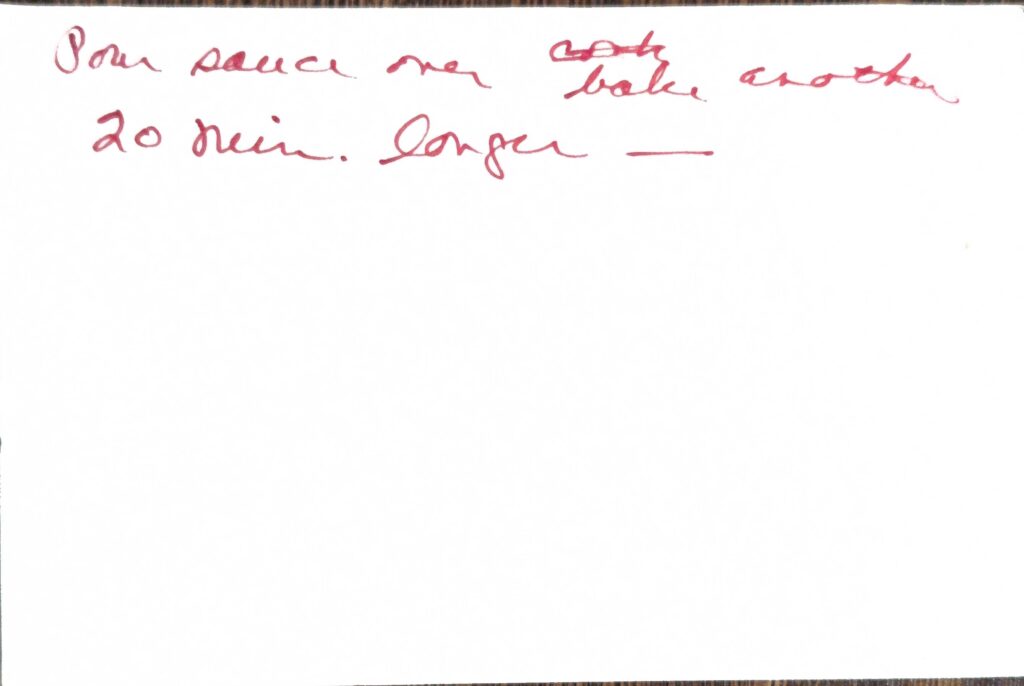 Pour sauce over cook bake another
20 min. longer —